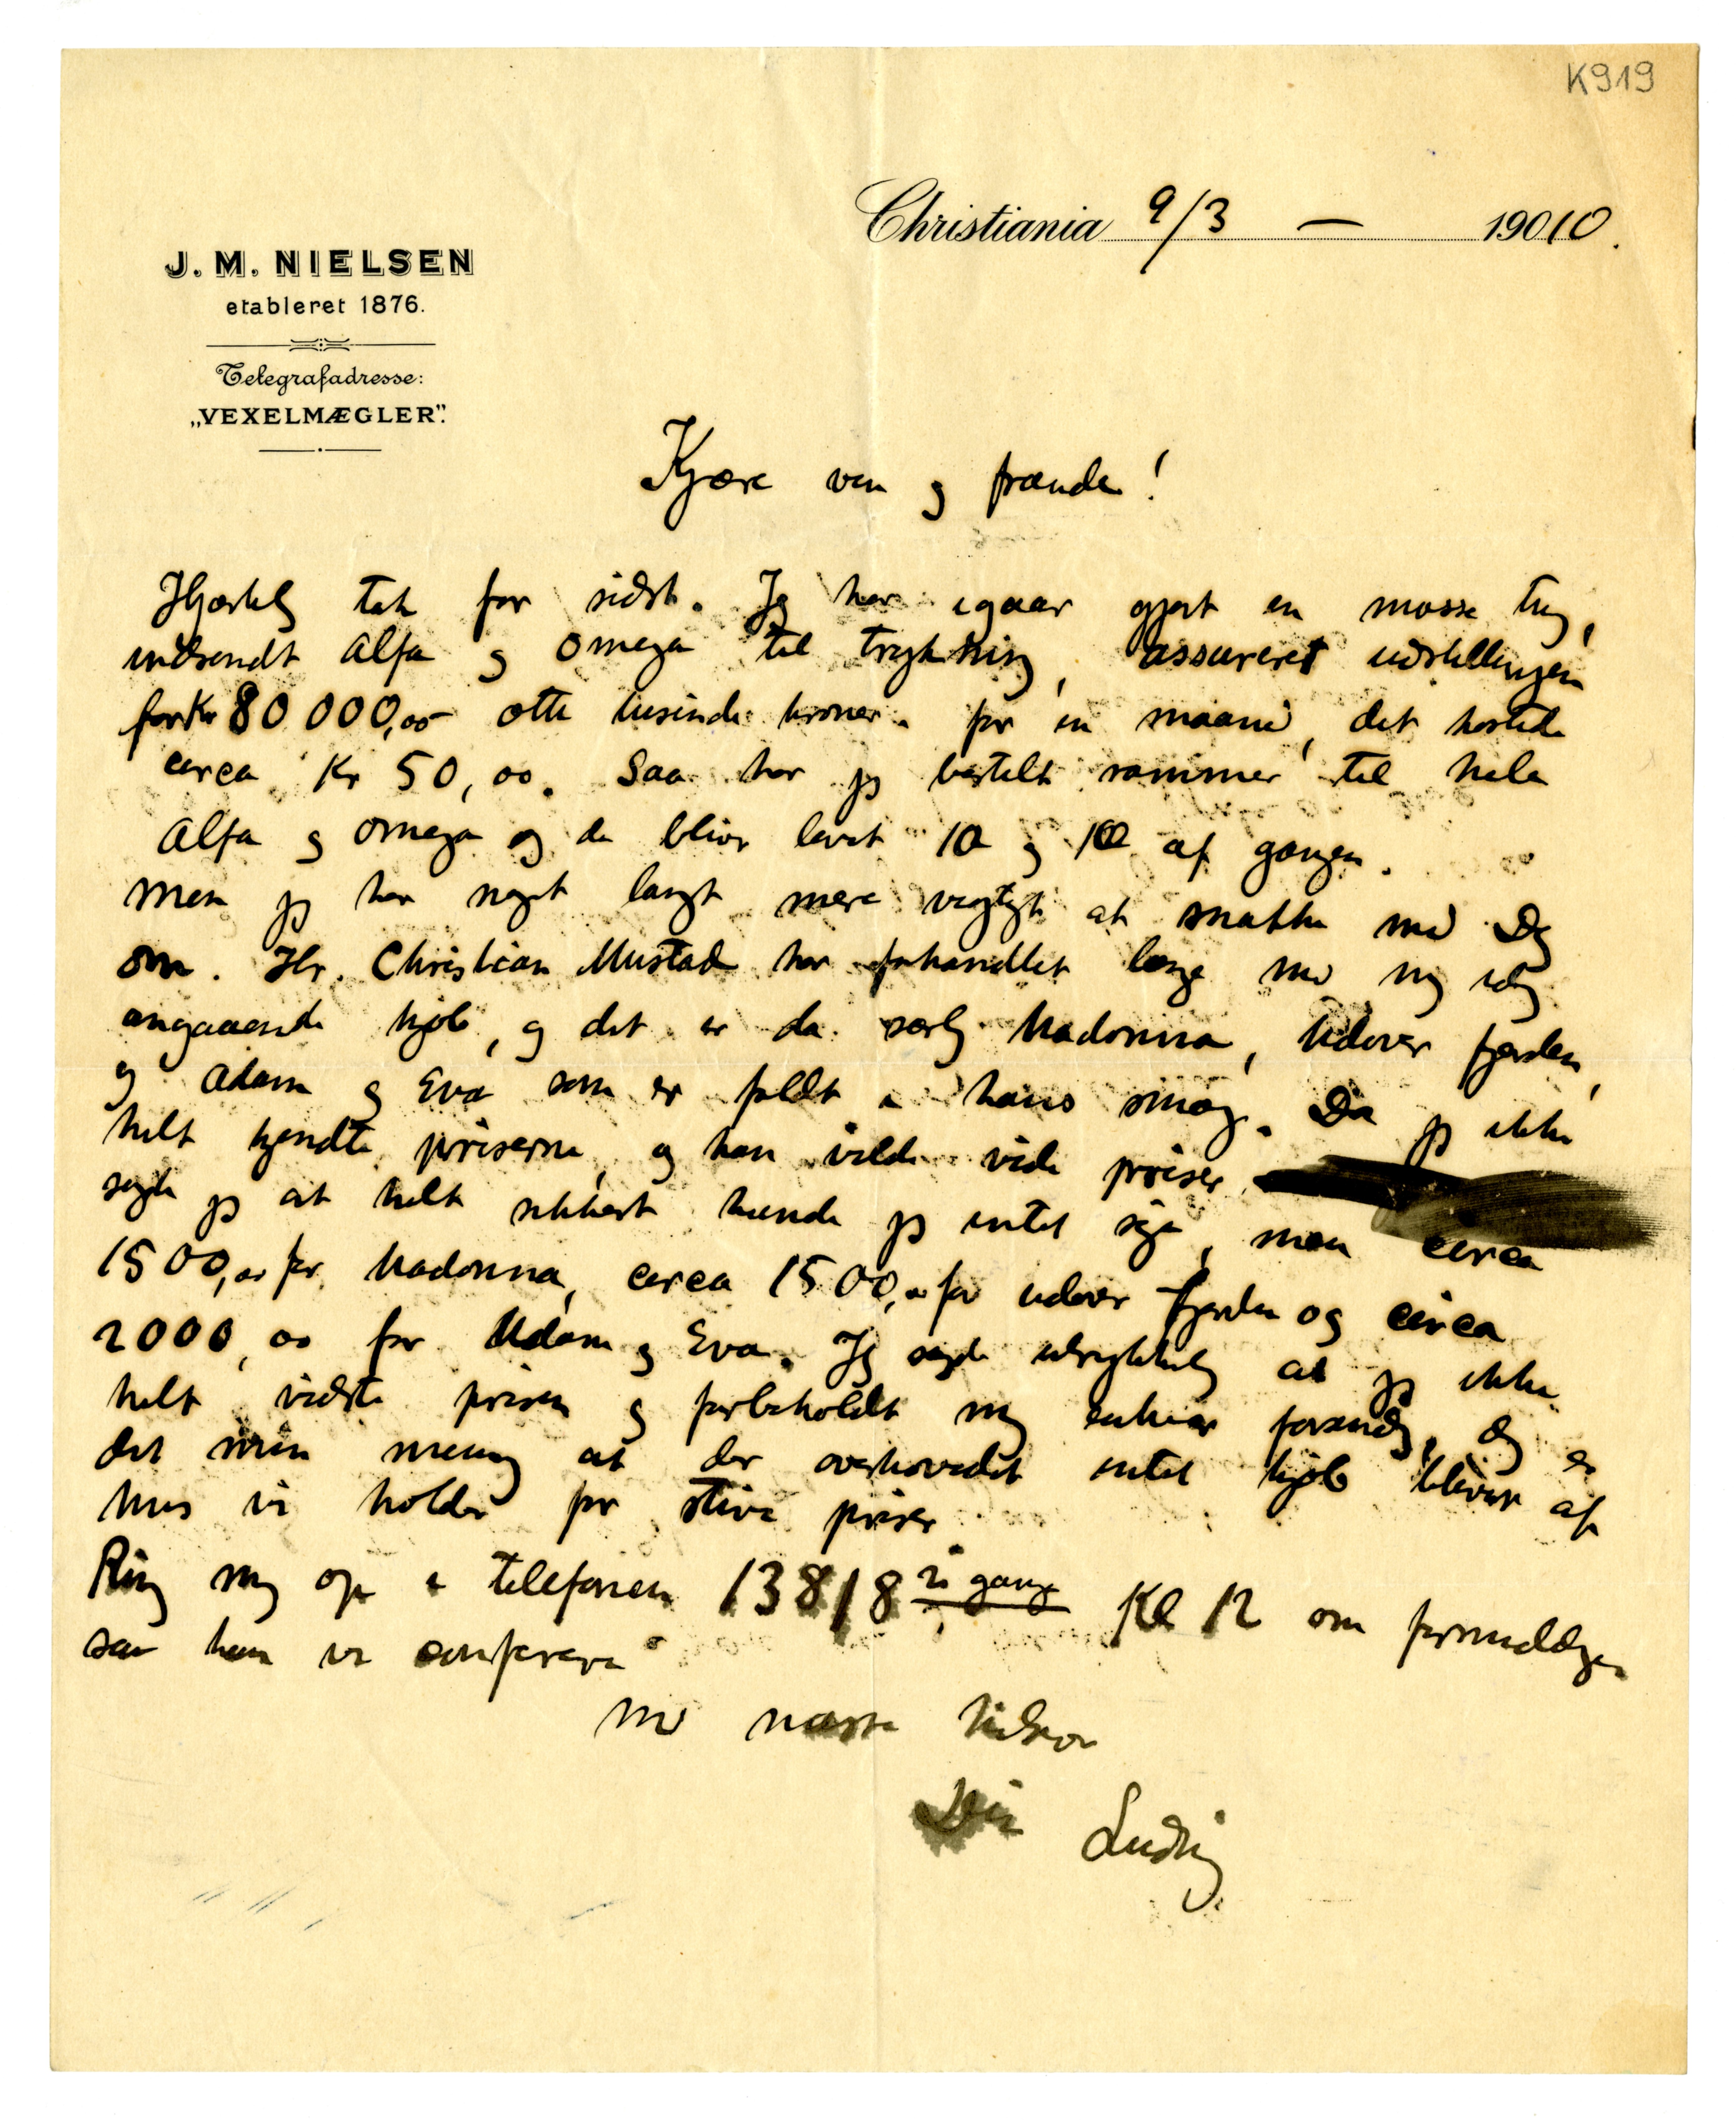 K919
Christiania 9/3 — 19010.
J. M. NIELSEN
etableret 1876.
Telegrafadresse:
„VEXELMÆGLER".
Kjære ven og frænde!
Hjærtelig tak for sidst. Jeg har igaar gjort en masse ting,
indsendt Alfa og Omega til trykning, assureret udstillingen
for Kr 80 000,00 otti tusinde kroner. for en maaned, det kostede
circa Kr 50,00. Saa har jeg bestilt rammer til hele
Alfa og Omega og de bliver lavet 10 og 10 af gangen.
Men jeg har noget langt mere vigtigt at snakke med Dig
om. Hr. Christian Mustad har forhandlet længe med mig idag
angaaende kjøb, og det er da særlig Madonna, Udover fjorden,
og Adam og Eva som er faldt i hans smag. Da jeg ikke
helt kjendte priserne, og han vilde vide priser,
sagde jeg at helt sikkert kunde jeg intet sige, men circa
1500,00 for Madonna, circa 1500,00 for udover fjorden og circa
2000,00 for Adam og Eva. Jeg sagde udtrykkelig at jeg ikke
helt vidste prisen og forbeholdt mig enhver forandring, dog er
det min mening at der overhovedet intet kjøb bliver af
hvis vi holder for stive priser
Ring mig op i telefonen 13818 Kl 12 om formiddagen
saa kan vi conferere
Med næste hilsen
Din Ludvig